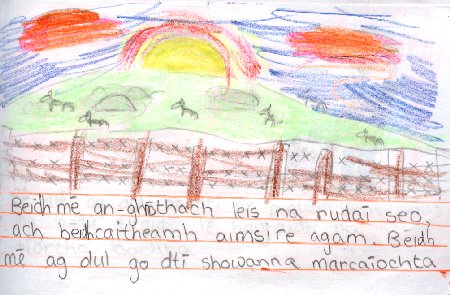 Beidh mé an-ghnothach leis na rudaí seo,
ach beidh caitheamh aimsire agam. Beidh
mé ag dul go dtí showanna marcaíochta